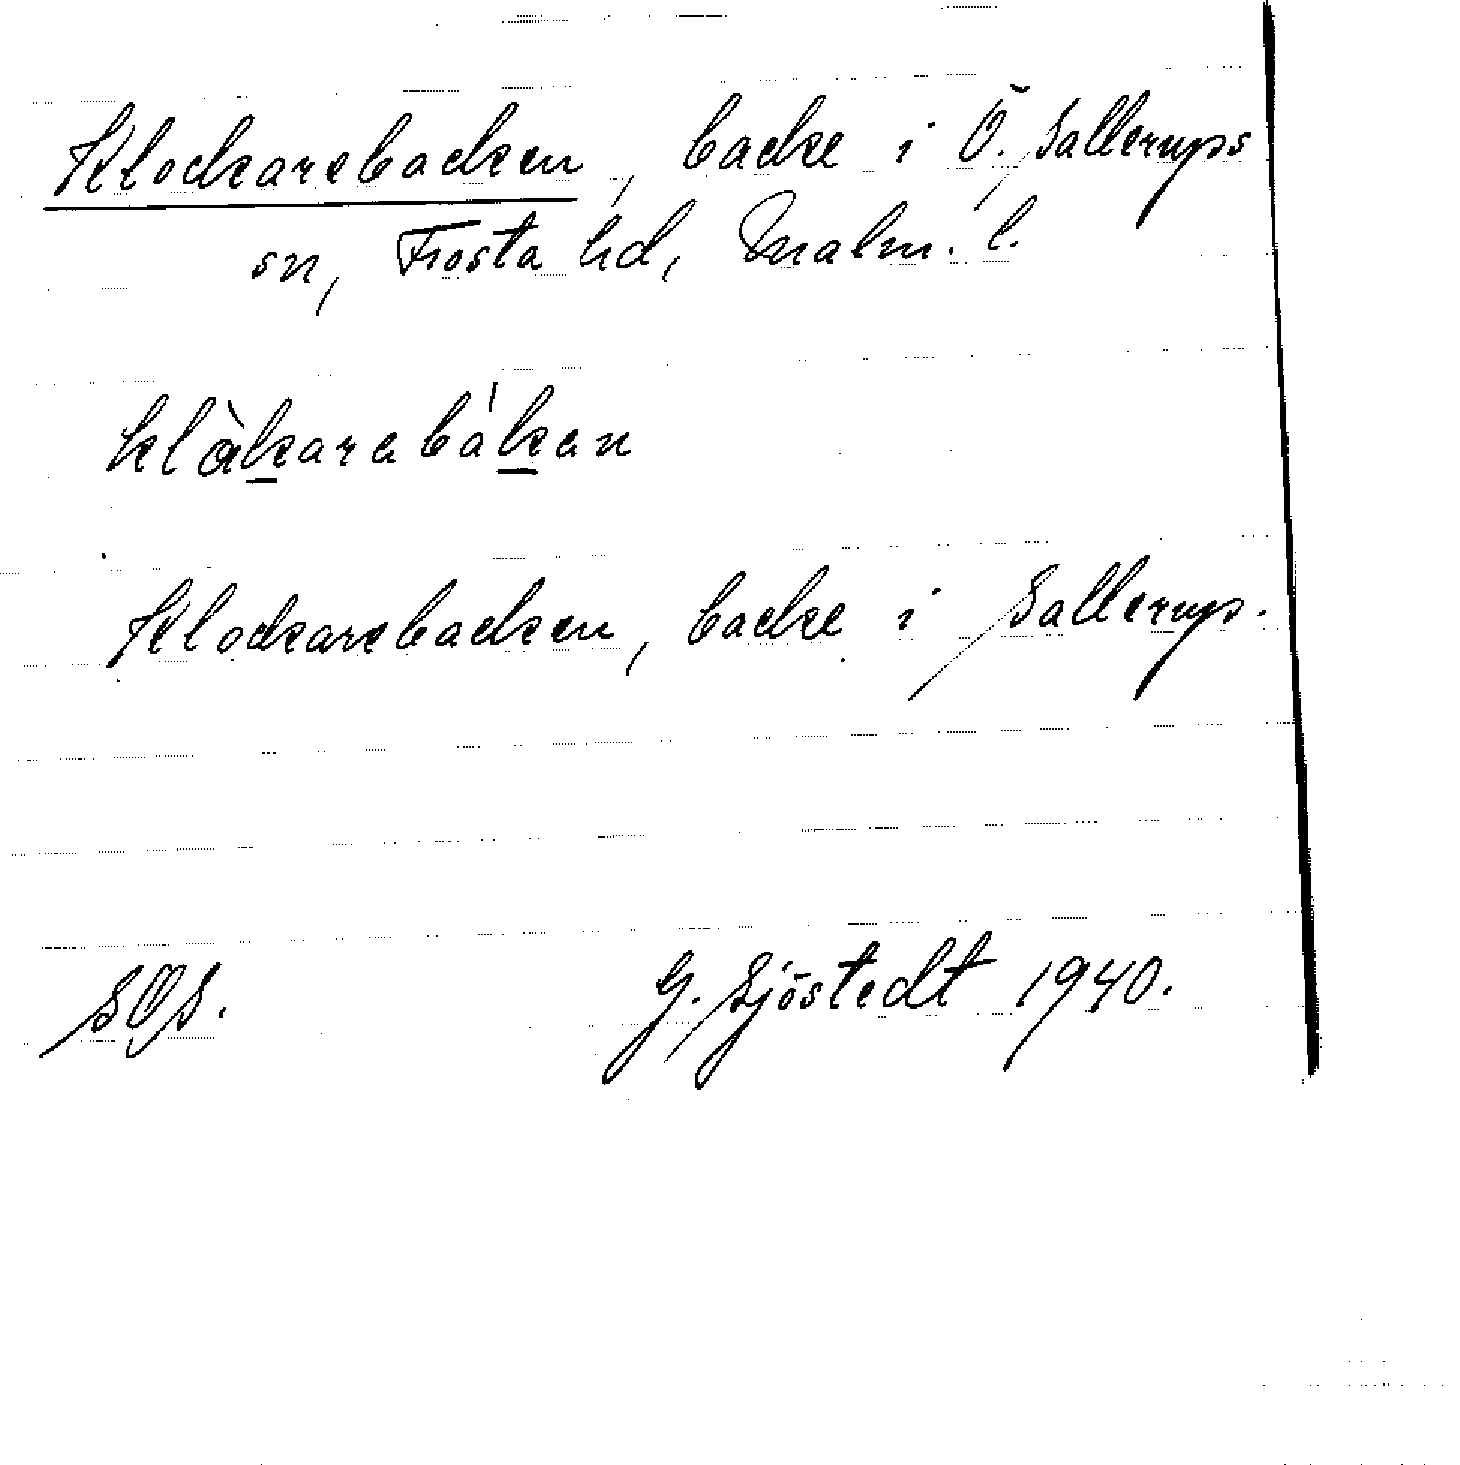 Klockarebacken, backe i Ö. Sallerups
sn, Frosta hd, Malm. l.
klàkarebákən
Klockarebacken, backe i Sallerup.
SOS.
G. Sjöstedt 1940.